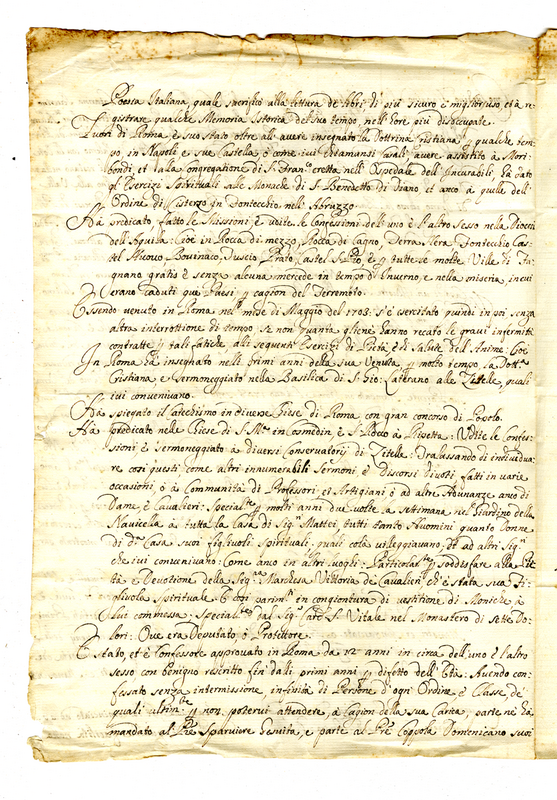 Poesia Italiana, quale sacrificò alla lettura de libri di più sicuro è miglior uso, et à re-
gistrare qualche Memoria Istorica del suo tempo, nell'hore più disoccupate.
Fuori di Roma è suo stato oltre all'avere insegnato la Dottrina Cristiana p qualche tem-
po, in Napoli e sue Castella, o come ivi chiamansi Casali, avere assistito à Mori-
bondi, et alla Congregazione di S. Fran.co eretta nell'Ospedale dell'Incurabili, Hà dato
gl'Esercizi Spirituali alle Monache di S. Benedetto di et anco à quelle dell'
Ordine di Cisterzo in Fontecchio nell'Abruzzo.
Hà predicato, fatto le Missioni, è udite le Confessioni dell'uno è l'altro sesso nella Diocesi
dell'Aquila: Cioè in Rocca di mezzo, Rocca di Cagno, Terra Nera, Fontecchio Cas-
tel Nuovo, Bominaco, Tuscio, Prato, Castel S. Pio, è p tutte le molte Ville di Ba-
gnano gratis è senza alcuna mercede in tempo d'Inverno, e nella miseria, in cui
erano caduti que Paesi p cagion del Terremoto.
Essendo venuto in Roma nel mese di Maggio del 1703: s'è esercitato quindi in poi senza
altra interrottione di tempo, se non quanta gliene hanno recato le gravi infermità
contratte p tali fatiche alli seguenti Esercizi di Pietà è di Salute dell'Anime: Cioè
In Roma hà insegnato nelli primi anni della sua Venuta, e p molto tempo la Dott.na
Cristiana, e sermoneggiato nella Basilica di S. Gio: Laterano alle Zitelle, quali
ivi convenivano.
Hà spiegato il Catechismo in diverse Chiese di Roma con gran concorso di Popolo.
Hà predicato nelle Chiese di S. M.a in Cosmedin, è S. Rocco à Ripetta: Udite le Confes-
sioni è sermoneggiato à diversi Conservatorij di Zitelle: Tralasciando di individua-
re così questi come altri innumerabili Sermoni, è Discorsi divoti fatti in varie
occasioni, ò à Comunità di Professori, et Artigiani, ò ad altre Adunanze anco di
Dame, è Cavalieri: Special.te p molti anni due volte la settimana nel Giardino della
Navicella à tutta la Casa di Sig.ri Mattei, tutti tanto Huomini quanto Donne
di d.a Casa suoi figlivoli Spirituali, quali colà villeggiavano, et ad altri Sig.ri
che ivi convenivano: Come anco in altri luoghi: Particolar.te p soddisfare alla Pie-
tà e Devozione della Sig.ra Marchesa Vittoria de Cavalieri, ch'è stata sua Fi-
gliuola Spirituale: E così parim.te in congiontura di vestitione di Moniche, à
lui commessa: Special.te dal Sig. Card. S. Vitale nel Monastero di Sette Do-
lori: Ove era Deputato, ò Protettore.
È stato, et è Confessore approvato in Roma da 12 anni in circa dell'uno è l'altro
sesso con benigno rescritto fin dalli primi anni p difetto dell'Età: Avendo con-
fessato senza intermissione, infinità di Persone d'ogni Ordine, è Classe, de
quali ultim.te p non potervi attendere, à cagion della sua Carica, parte ne hà
mandato al P.re Sparviere Gesuita, e parte al P.re Coppola Domenicano suoi